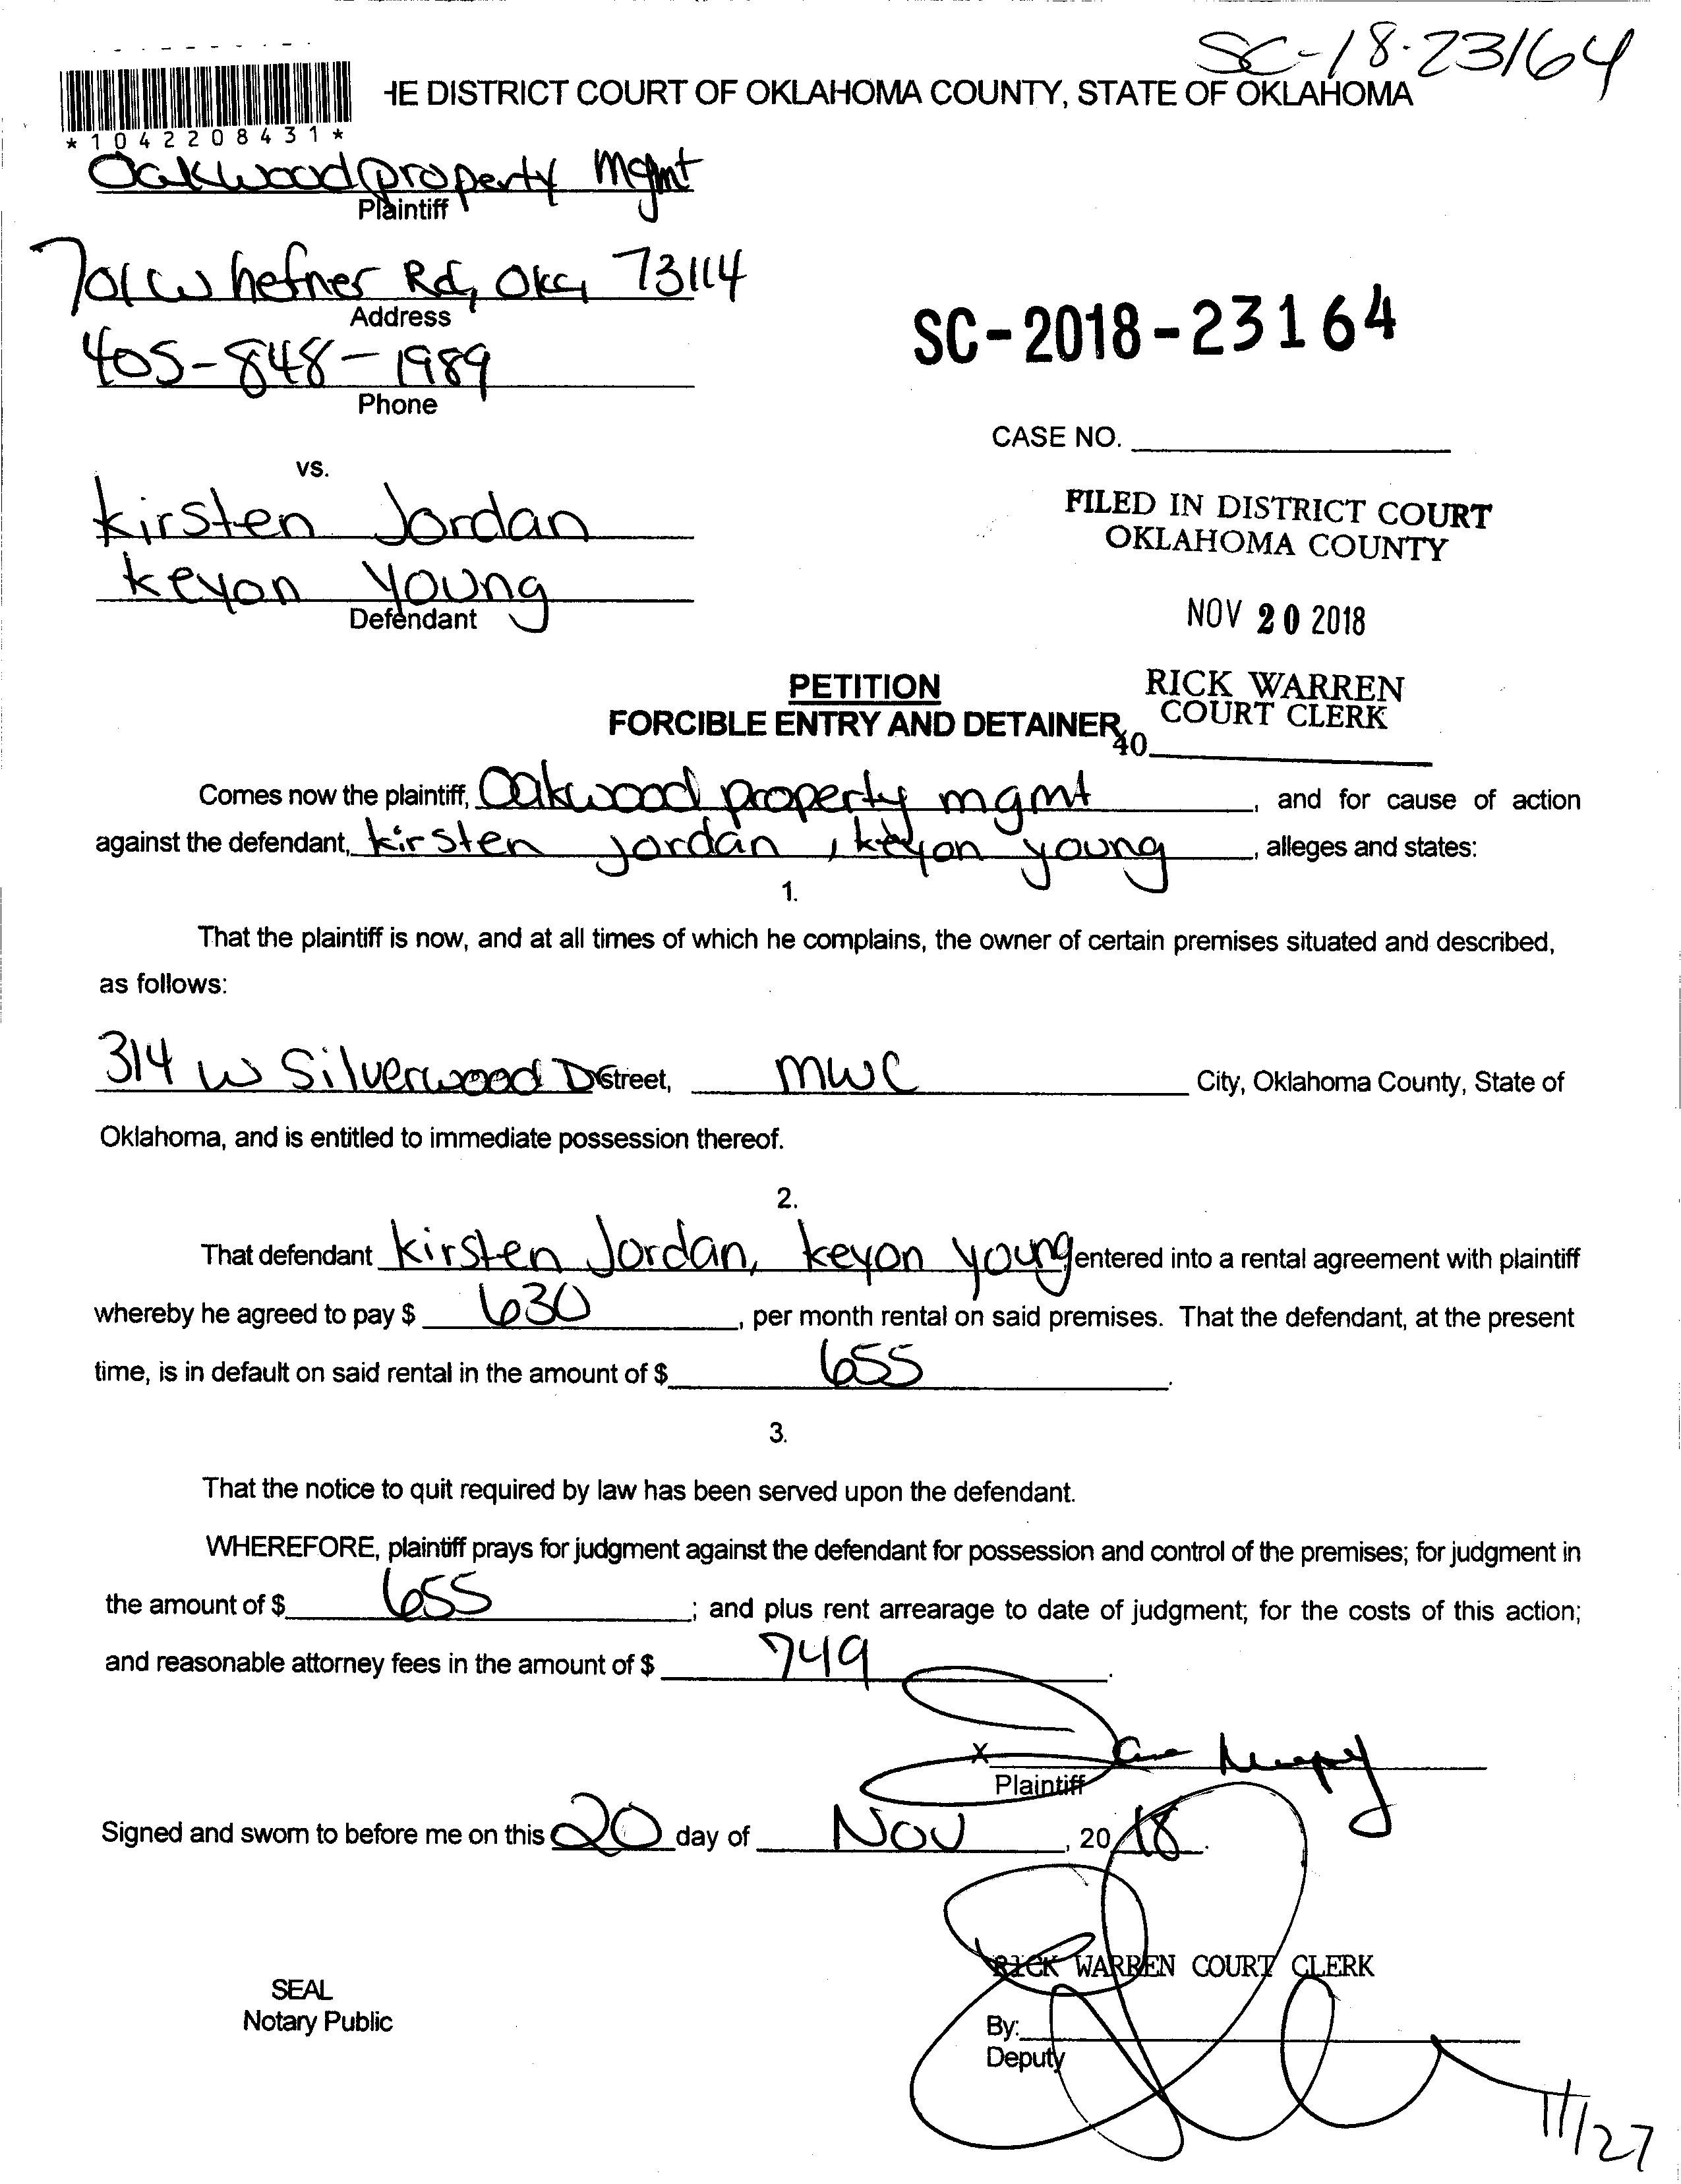 SC-18-23164
HE DISTRICT COURT OF OKLAHOMA COUNTY, STATE OF OKLAHOMA
*1042208431*
Oakwood property Mgmt
Plaintiff
701 W hefner Rd, OKC, 73114
Address
405-848-1989
Phone
SC-2018-23164
CASE NO.
vs.
kirsten Jordan
keyon young
Defendant
FILED IN DISTRICT COURT
OKLAHOMA COUNTY
NOV 20 2018
RICK WARREN
COURT CLERK
40
PETITION
FORCIBLE ENTRY AND DETAINER
Comes now the plaintiff, Oakwood property mgmt, and for cause of action
against the defendant, kirsten jordan, keyon young, alleges and states:
1.
That the plaintiff is now, and at all times of which he complains, the owner of certain premises situated and described,
as follows:
314 W Silverwood D Street, MWC City, Oklahoma County, State of
Oklahoma, and is entitled to immediate possession thereof.
2.
That defendant kirsten Jordan, keyon young entered into a rental agreement with plaintiff
whereby he agreed to pay $ 630, per month rental on said premises. That the defendant, at the present
time, is in default on said rental in the amount of $ 655.
3.
That the notice to quit required by law has been served upon the defendant.
WHEREFORE, plaintiff prays for judgment against the defendant for possession and control of the premises; for judgment in
the amount of $ 655; and plus rent arrearage to date of judgment; for the costs of this action;
and reasonable attorney fees in the amount of $ 749.
X
Plaintiff
Signed and sworn to before me on this 20 day of Nov, 2018.
RICK WARREN COURT CLERK
SEAL
Notary Public
By:
Deputy
11/27